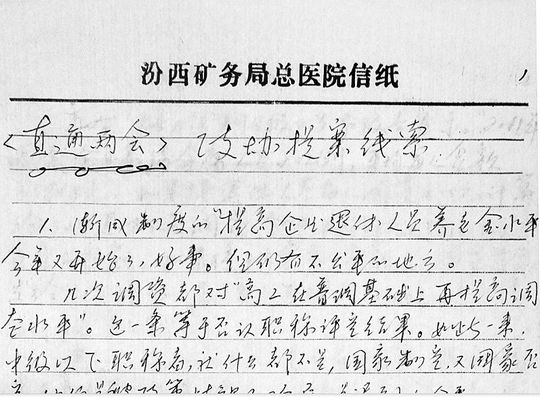 汾西矿务局总医院信纸
1
<直通两会> 政协提案线索
1. 渐成制度的"提高企业退休人员养老金水平
今年又再始了,好事。但仍有不公平的地方。
几次调资都对"高工在普调基础上再提高调
金水平"。这一条等于否认职称评定结果。如此一来,
中级以下职称者,就什么都不是,国家制定,又国家否